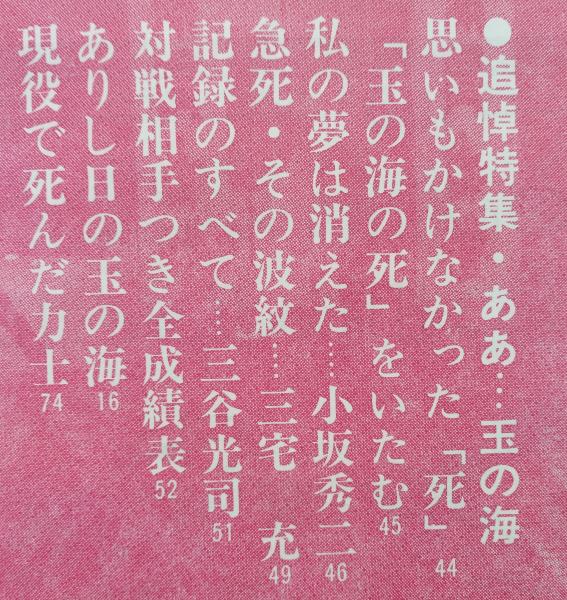 ●追悼特集・ああ…玉の海
思いもかけなかった「死」44
「玉の海の死」をいたむ45
私の夢は消えた……小坂秀二46
急死・その波紋……三宅　充49
記録のすべて……三谷光司51
対戦相手つき全成績表52
ありし日の玉の海16
現役で死んだ力士74